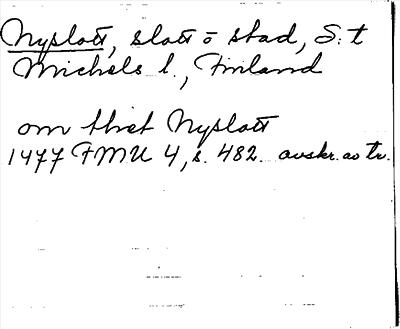 Nyslott, slott o stad, S:t
Michels l., Finland
om thet Nyslott
1477 FMU 4, s. 482. avskr. av tr.